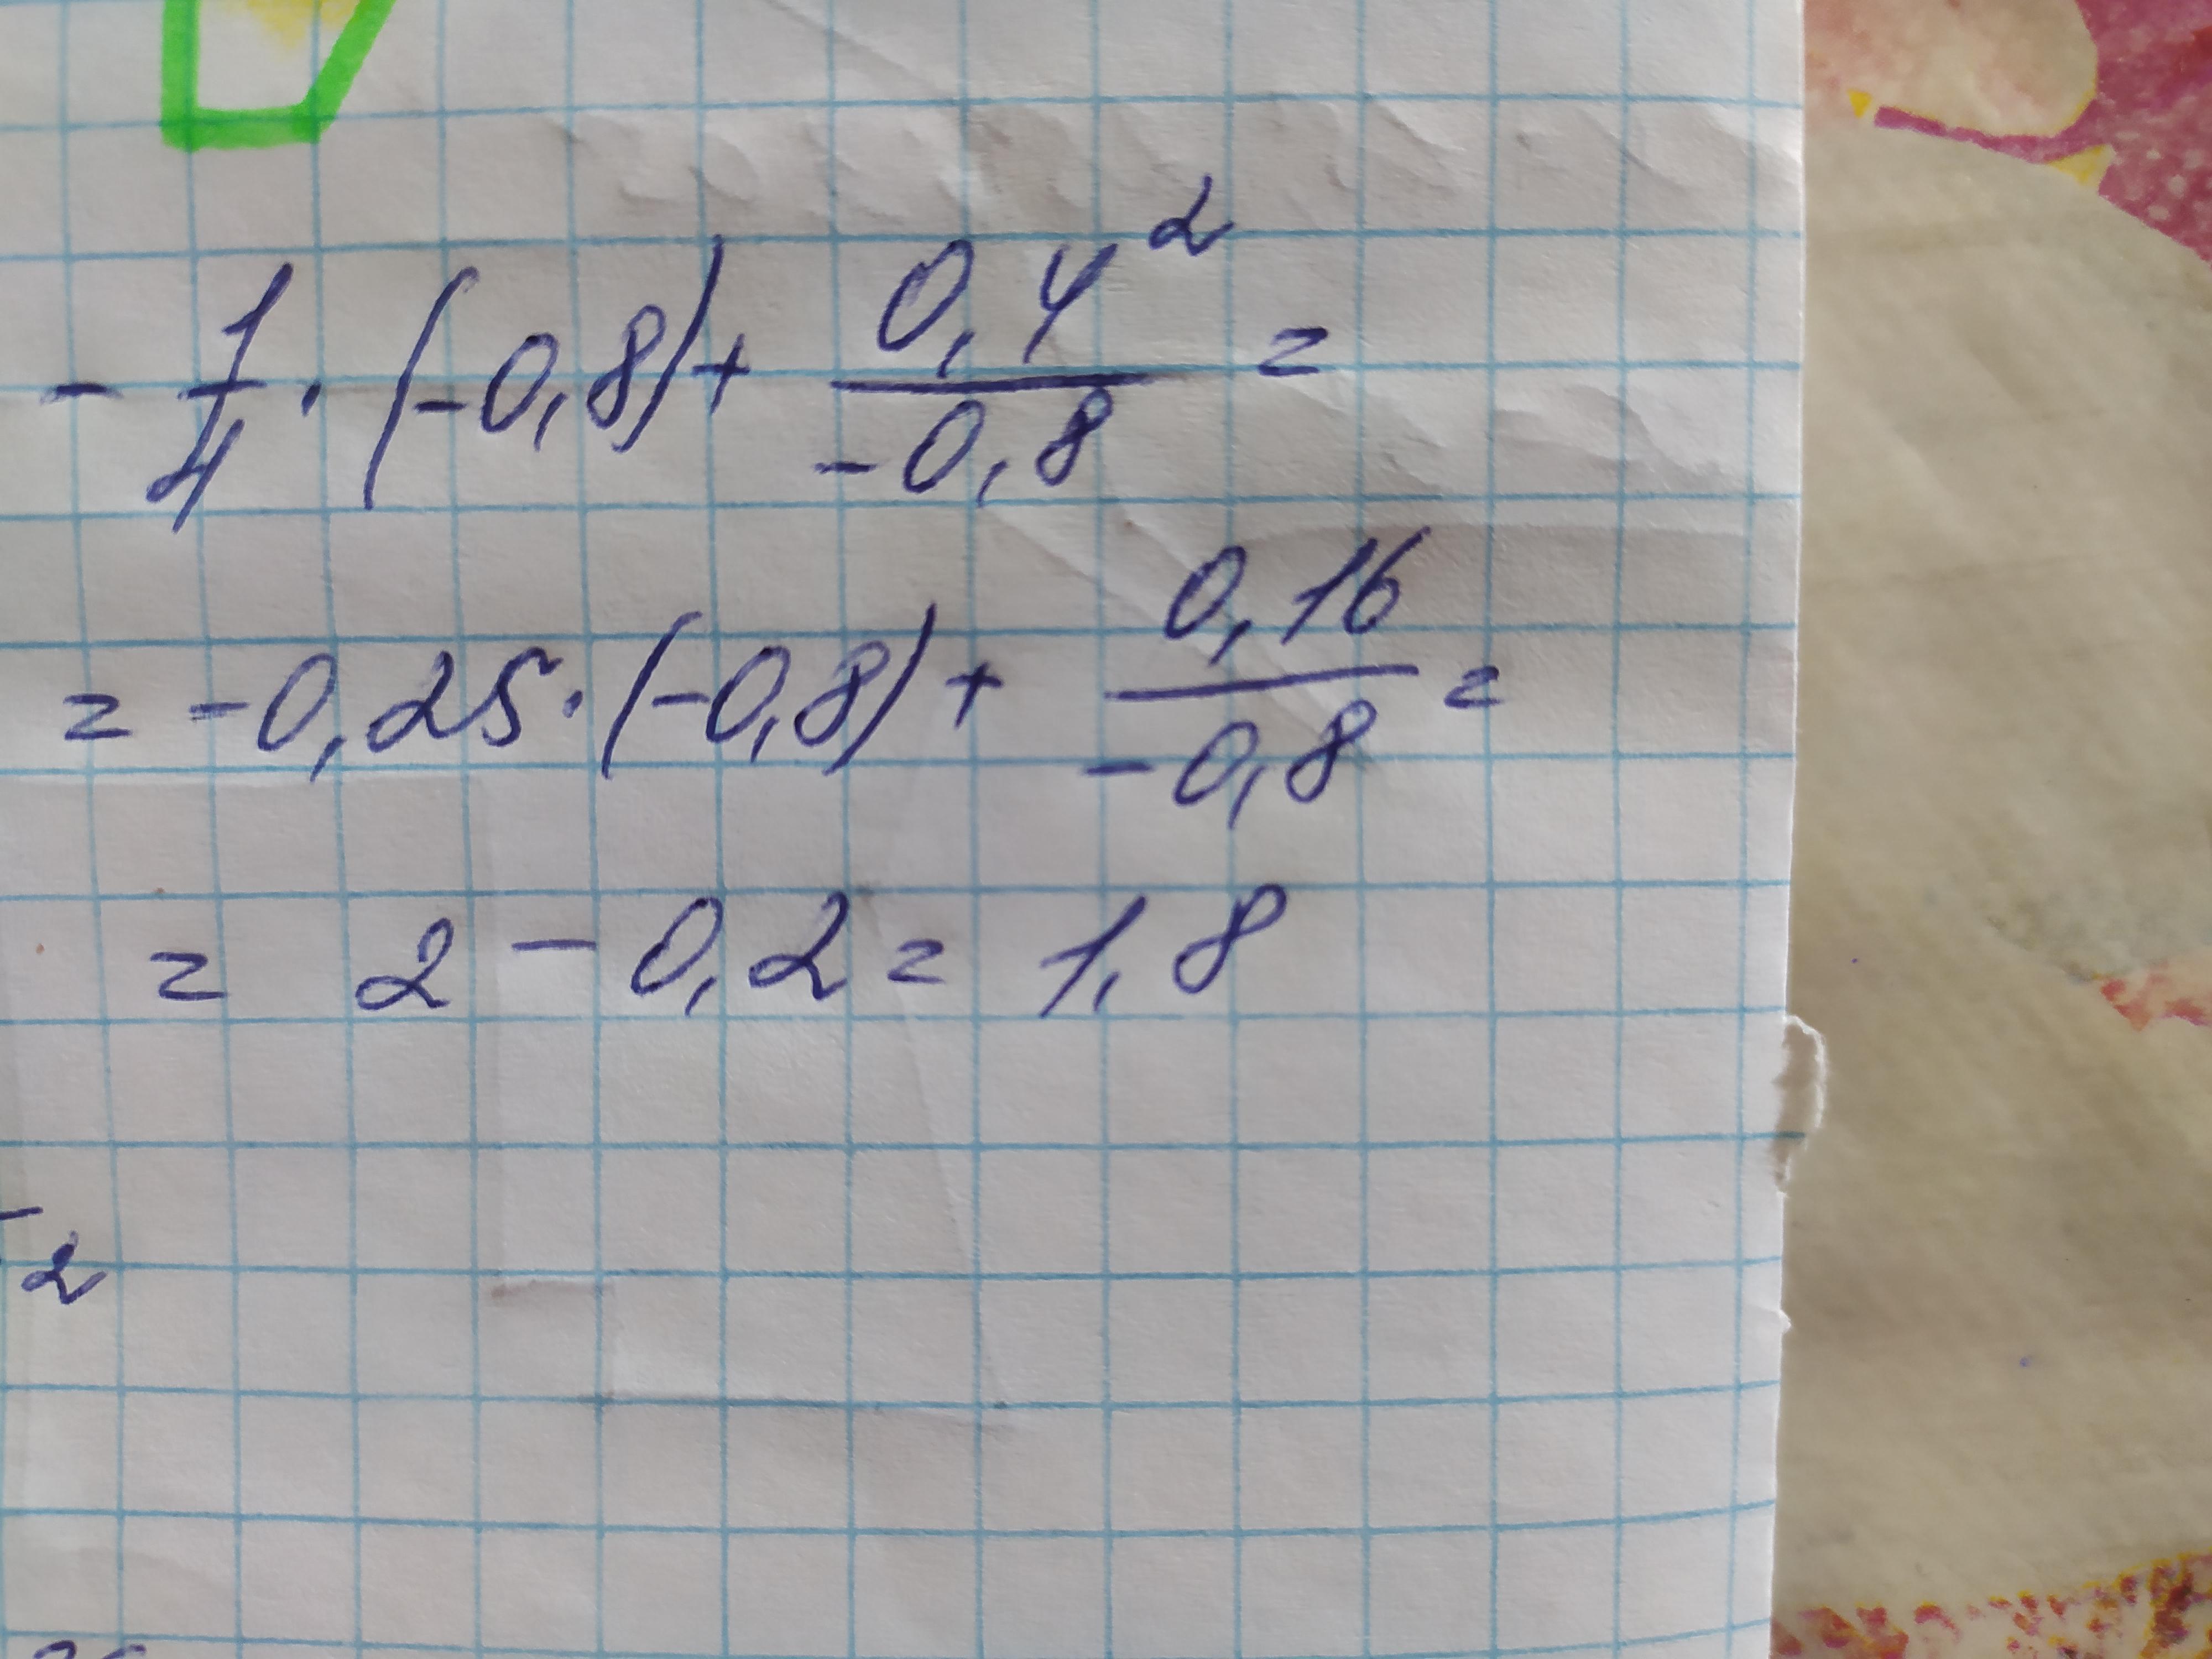 -1/4 · (-0,8) + 0,4²/-0,8 =
= -0,25 · (-0,8) + 0,16/-0,8 =
= 2 - 0,2 = 1,8
2